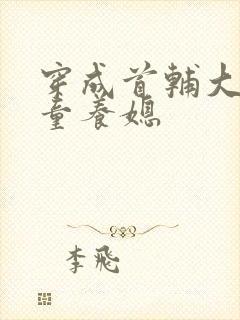 穿成首輔大
童養媳
李飛